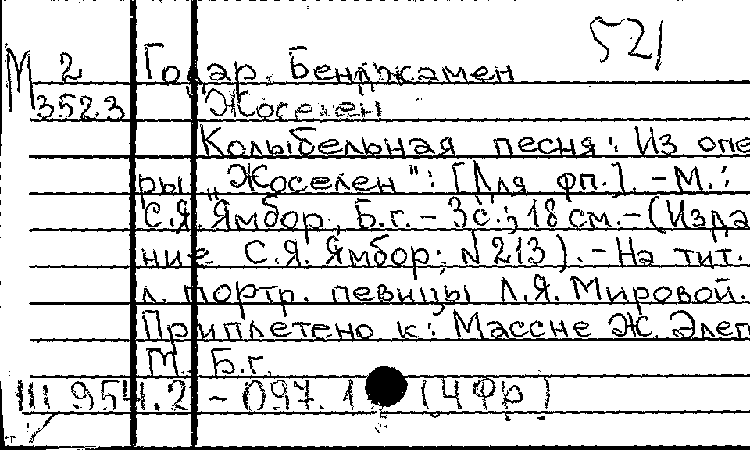 521
М 2 Годар, Бенджамен
352.3 Жоселен
Колыбельная песня: Из опе
ры „Жоселен": [Для фп.]. - М.:
С.Я. Ямбор, Б.г. - 3с.; 18 см. - (Изда
ние С.Я. Ямбор; N 213). - На тит.
л. портр. певицы Л.Я. Мировой.
Приплетено к: Массне Ж. Элег
М. Б.г.
Ш 954.2 ~ 097. 1 (4 Фр)